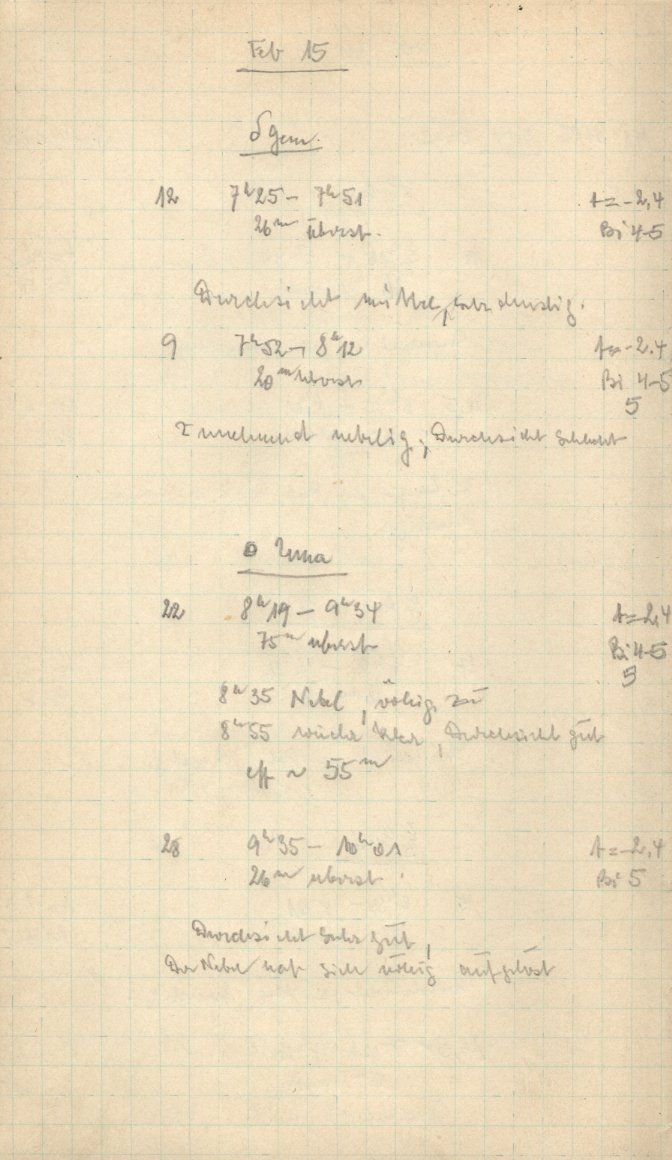 Feb 15
δ gem.
12 7h25 – 7h51 t=-2,4
26m überst. Bi 4-5
Durchsicht mittel, sehr dunstig.
9 7h52 – 8h12 t=-2.4
20m überst Bi 4-5
5
Zunehmend neblig; Durchsicht schlecht
22 8h19 – 9h34 t=2,4
75m uberst Bi 4-5
5
8h35 Nebel, völlig zu
8h55 wieder klar, Durchsicht gut
eff ~ 55m
28 9h35 – 10h01 t=-2,4
26m uberst. Bi 5
Durchsicht sehr gut,
Der Nebel hat sich völlig aufgelöst